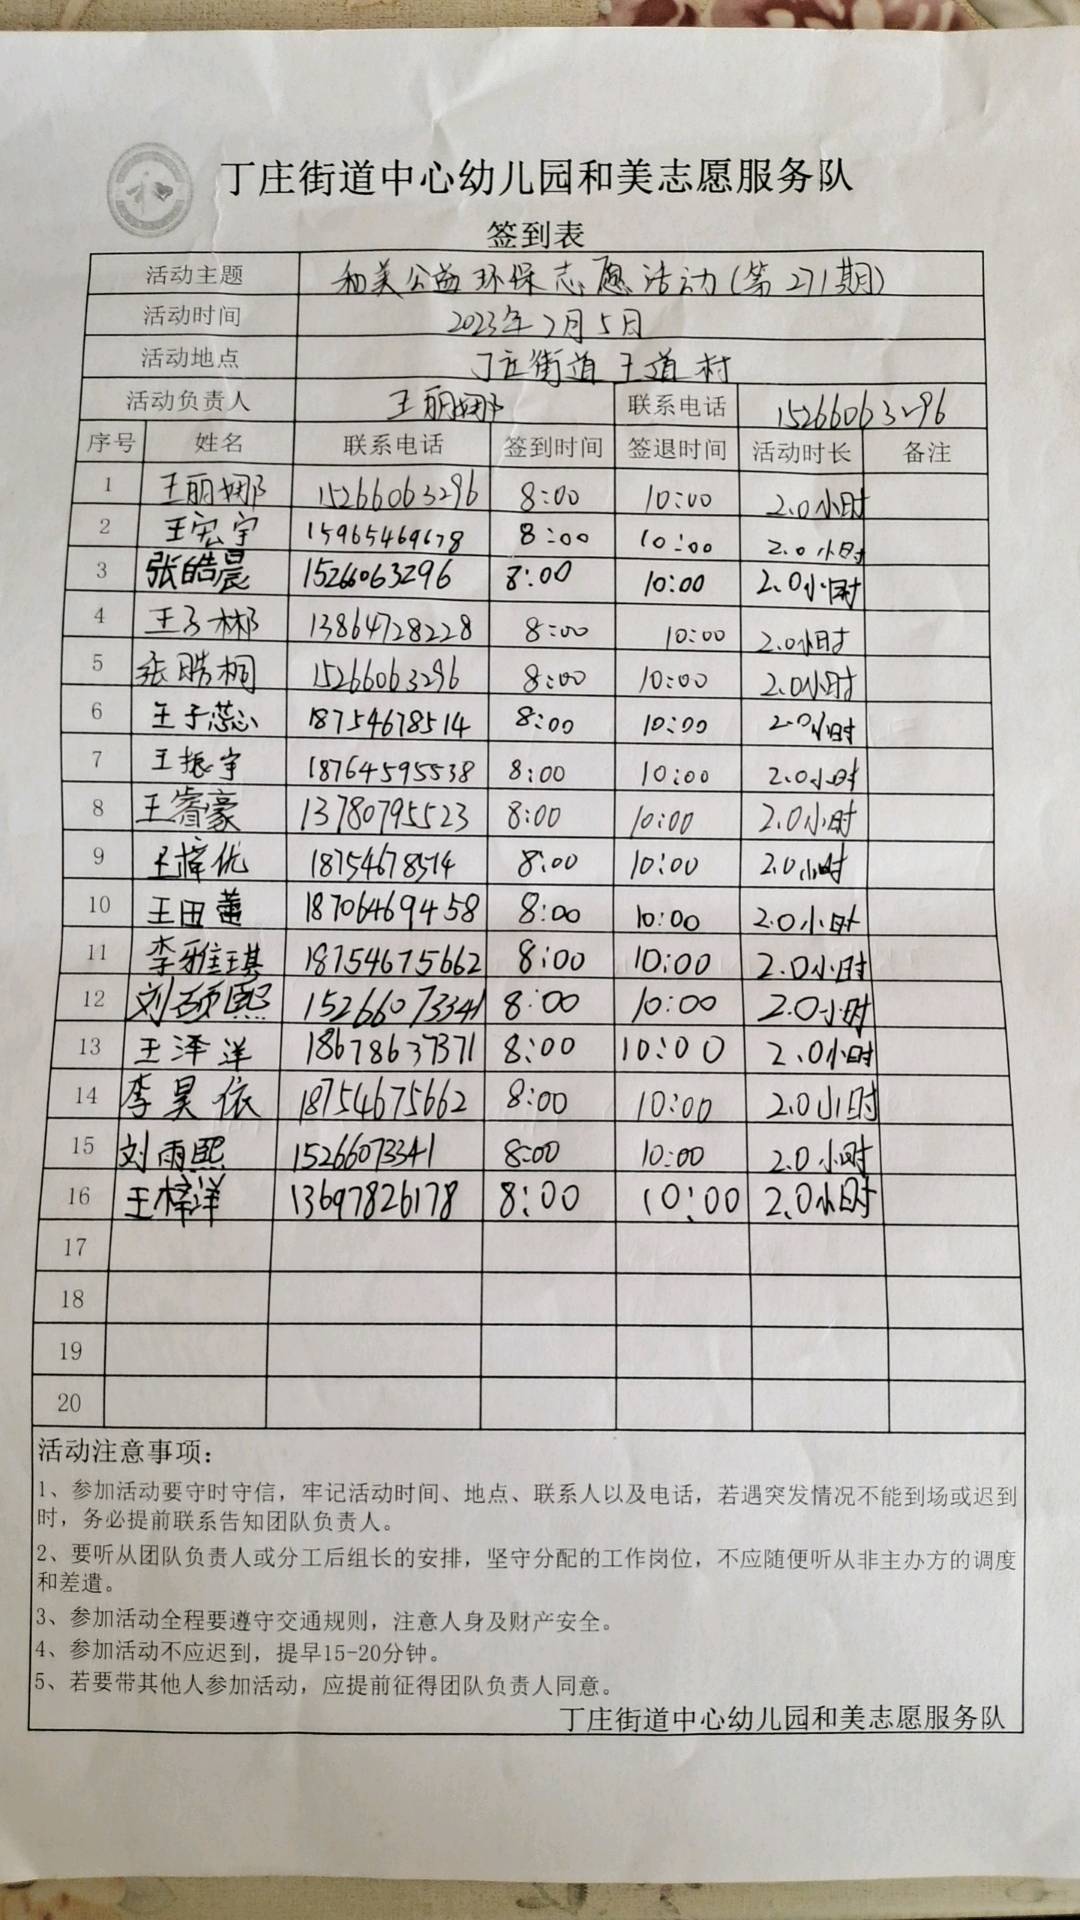 丁庄街道中心幼儿园和美志愿服务队
签到表
活动主题 和美公益环保志愿活动(第271期)
活动时间 2023年7月5日
活动地点 丁庄街道王道村
活动负责人 王丽娜 联系电话 15266063296
序号 姓名 联系电话 签到时间 签退时间 活动时长 备注
1 王丽娜 15266063296 8:00 10:00 2.0小时
2 王宏宇 15965469678 8:00 10:00 2.0小时
3 张皓晨 15266063296 8:00 10:00 2.0小时
4 王子彬 13864728228 8:00 10:00 2.0小时
5 张皓桐 15266063296 8:00 10:00 2.0小时
6 王子蕊 18754678514 8:00 10:00 2.0小时
7 王振宇 18764595538 8:00 10:00 2.0小时
8 王睿豪 13780795523 8:00 10:00 2.0小时
9 王梓优 18754678514 8:00 10:00 2.0小时
10 王田蕾 18706469458 8:00 10:00 2.0小时
11 李雅琪 18754675662 8:00 10:00 2.0小时
12 刘硕熙 15266073341 8:00 10:00 2.0小时
13 王泽洋 18678637371 8:00 10:00 2.0小时
14 李昊依 18754675662 8:00 10:00 2.0小时
15 刘雨熙 15266073341 8:00 10:00 2.0小时
16 王梓洋 13697826178 8:00 10:00 2.0小时
17
18
19
20
活动注意事项:
1、参加活动要守时守信，牢记活动时间、地点、联系人以及电话，若遇突发情况不能到场或迟到
时，务必提前联系告知团队负责人。
2、要听从团队负责人或分工后组长的安排，坚守分配的工作岗位，不应随便听从非主办方的调度
和差遣。
3、参加活动全程要遵守交通规则，注意人身及财产安全。
4、参加活动不应迟到，提早15-20分钟。
5、若要带其他人参加活动，应提前征得团队负责人同意。
丁庄街道中心幼儿园和美志愿服务队